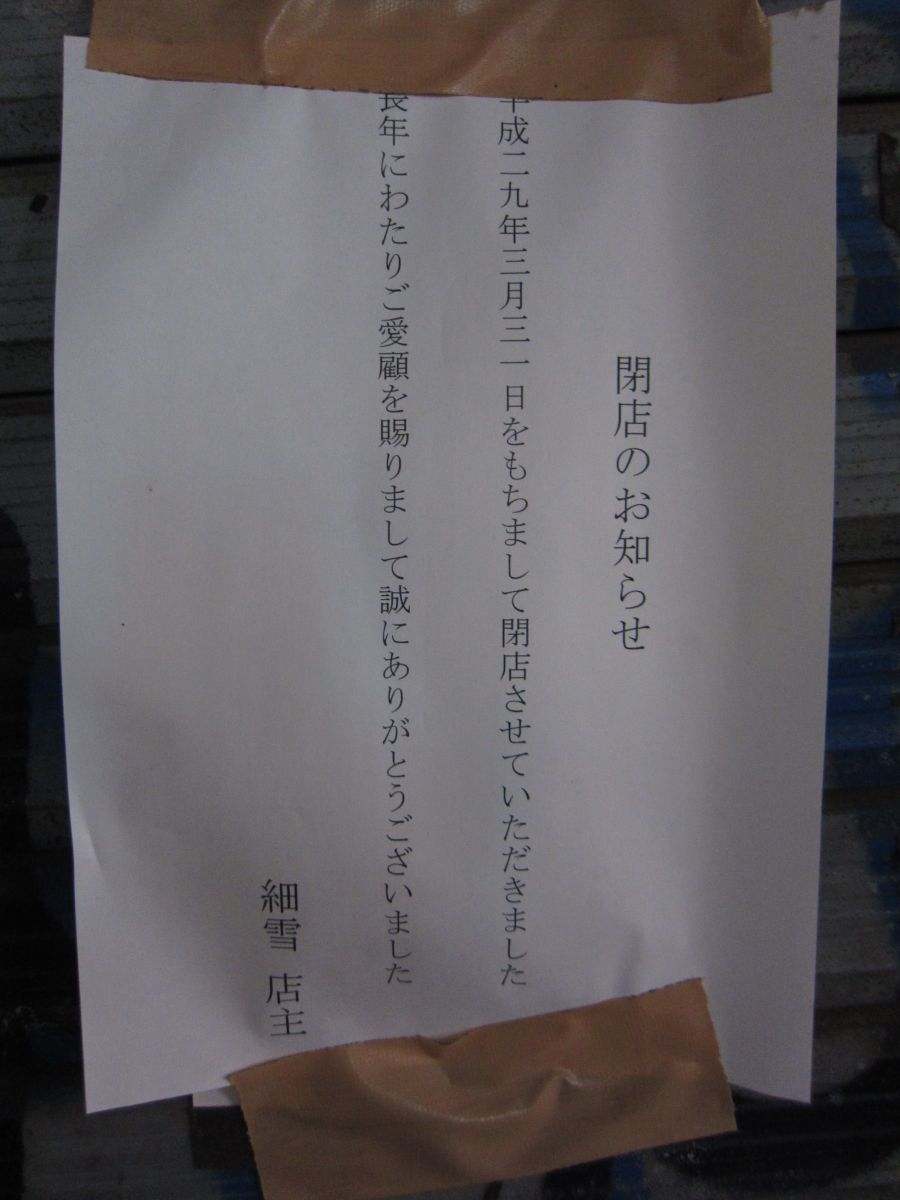 閉店のお知らせ
平成二九年三月三一日をもちまして閉店させていただきました
長年にわたりご愛顧を賜りまして誠にありがとうございました
細雪 店主